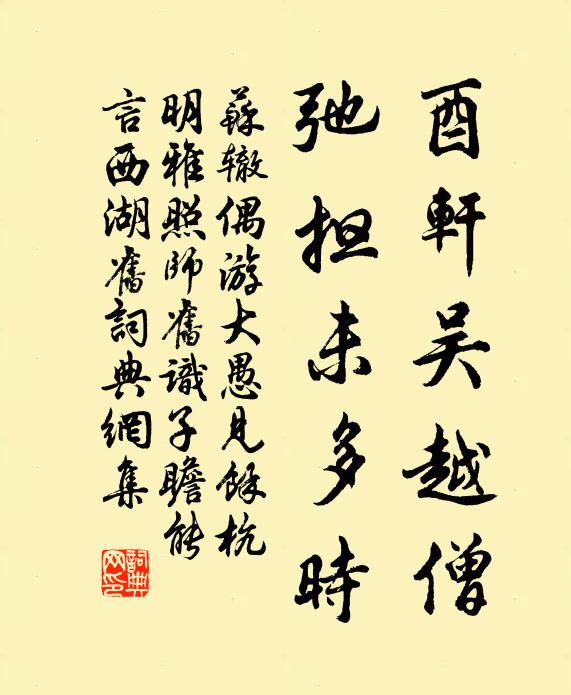 酉軒吴越僧
弛担未多時
蘇辙偶游大愚見餘杭
明雅照師舊識子瞻能
言西湖舊詞典網集
詞典网印